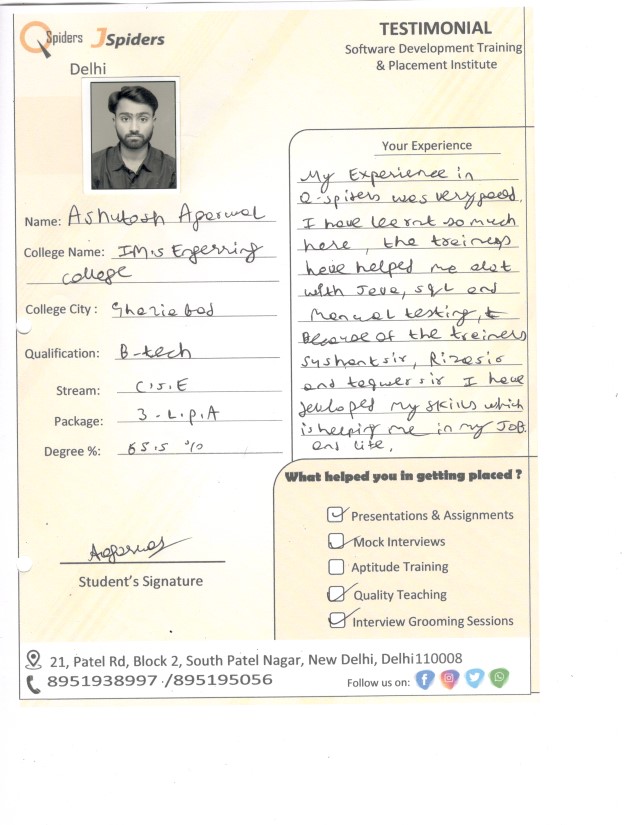 QSpiders JSpiders
Delhi
TESTIMONIAL
Software Development Training
& Placement Institute
Name: Ashutosh Agarwal
College Name: I.M.S Engerring
college
College City: Ghaziabad
Qualification: B-tech
Stream: C.S.E
Package: 3-L.P.A
Degree %: 65.5 %
Agarwal
Student's Signature
Your Experience
My Experience in
Q-spiders was very good.
I have learnt so much
here, the trainers
have helped me alot
with Java, sql and
Manual testing,
Because of the trainers
Sushant sir,
and sir I have
my skills which
is helping me in my JOB.
and life.
What helped you in getting placed ?
Presentations & Assignments
Mock Interviews
Aptitude Training
Quality Teaching
Interview Grooming Sessions
21, Patel Rd, Block 2, South Patel Nagar, New Delhi, Delhi110008
8951938997 /895195056
Follow us on: